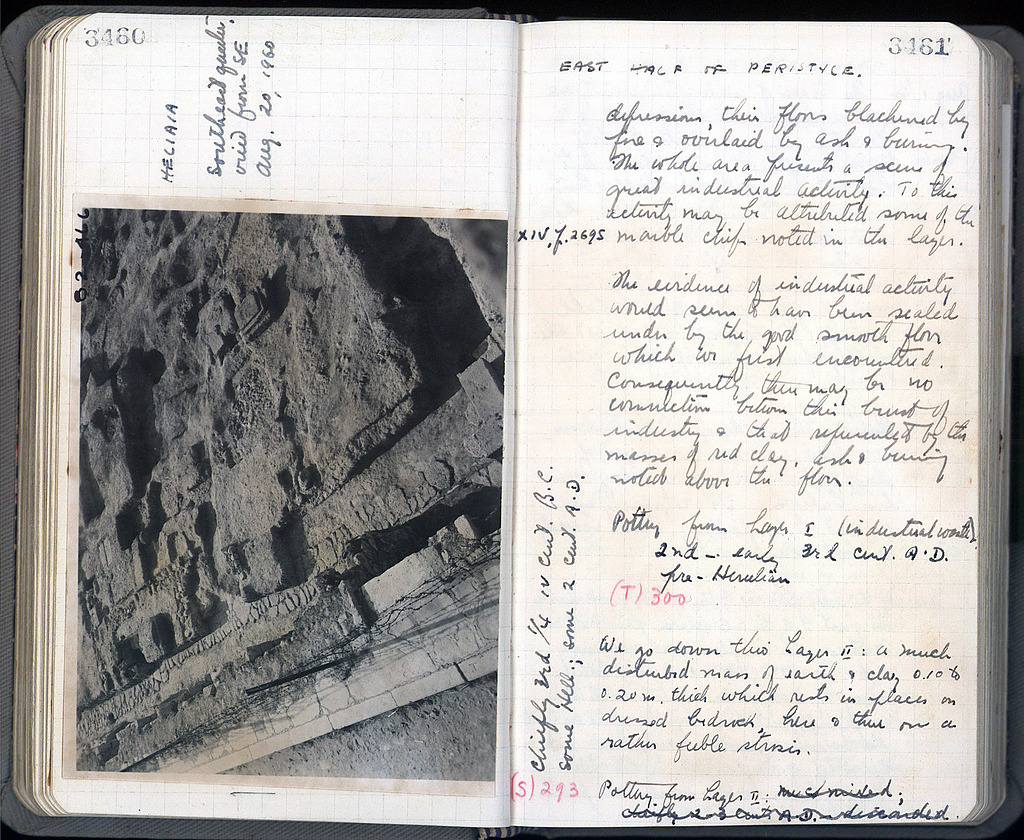 3460
HELIAIA
Southeast quarter,
view from SE
Aug. 20, 1960
82-46
3461
EAST HALF OF PERISTYLE.
depressions, their floors blackened by
fire & overlaid by ash & burning.
The whole area presents a scene of
great industrial activity. To this
activity may be attributed some of the
XIV, p. 2695 marble chips noted in the layer.
The evidence of industrial activity
would seem to have been sealed
under by the good smooth floor
which we first encountered.
Consequently there may be no
connection between this burst of
industry & that represented by the
masses of red clay, ash & burning
noted above the floor.
Pottery from Layer I (industrial waste),
2nd – early 3rd cent. A.D.
pre-Herulian
(T) 300
We go down thro Layer II: a much
disturbed mass of earth & clay 0.10 to
0.20 m. thick which rests in places on
dressed bedrock, here & there on a
rather feeble strosis.
Pottery from Layer II: much mixed;
chiefly 2 cent. A.D. discarded.
(S) 293
Chiefly 3rd 1/4 IV cent. B.C.
some Hell.; some 2 cent. A.D.